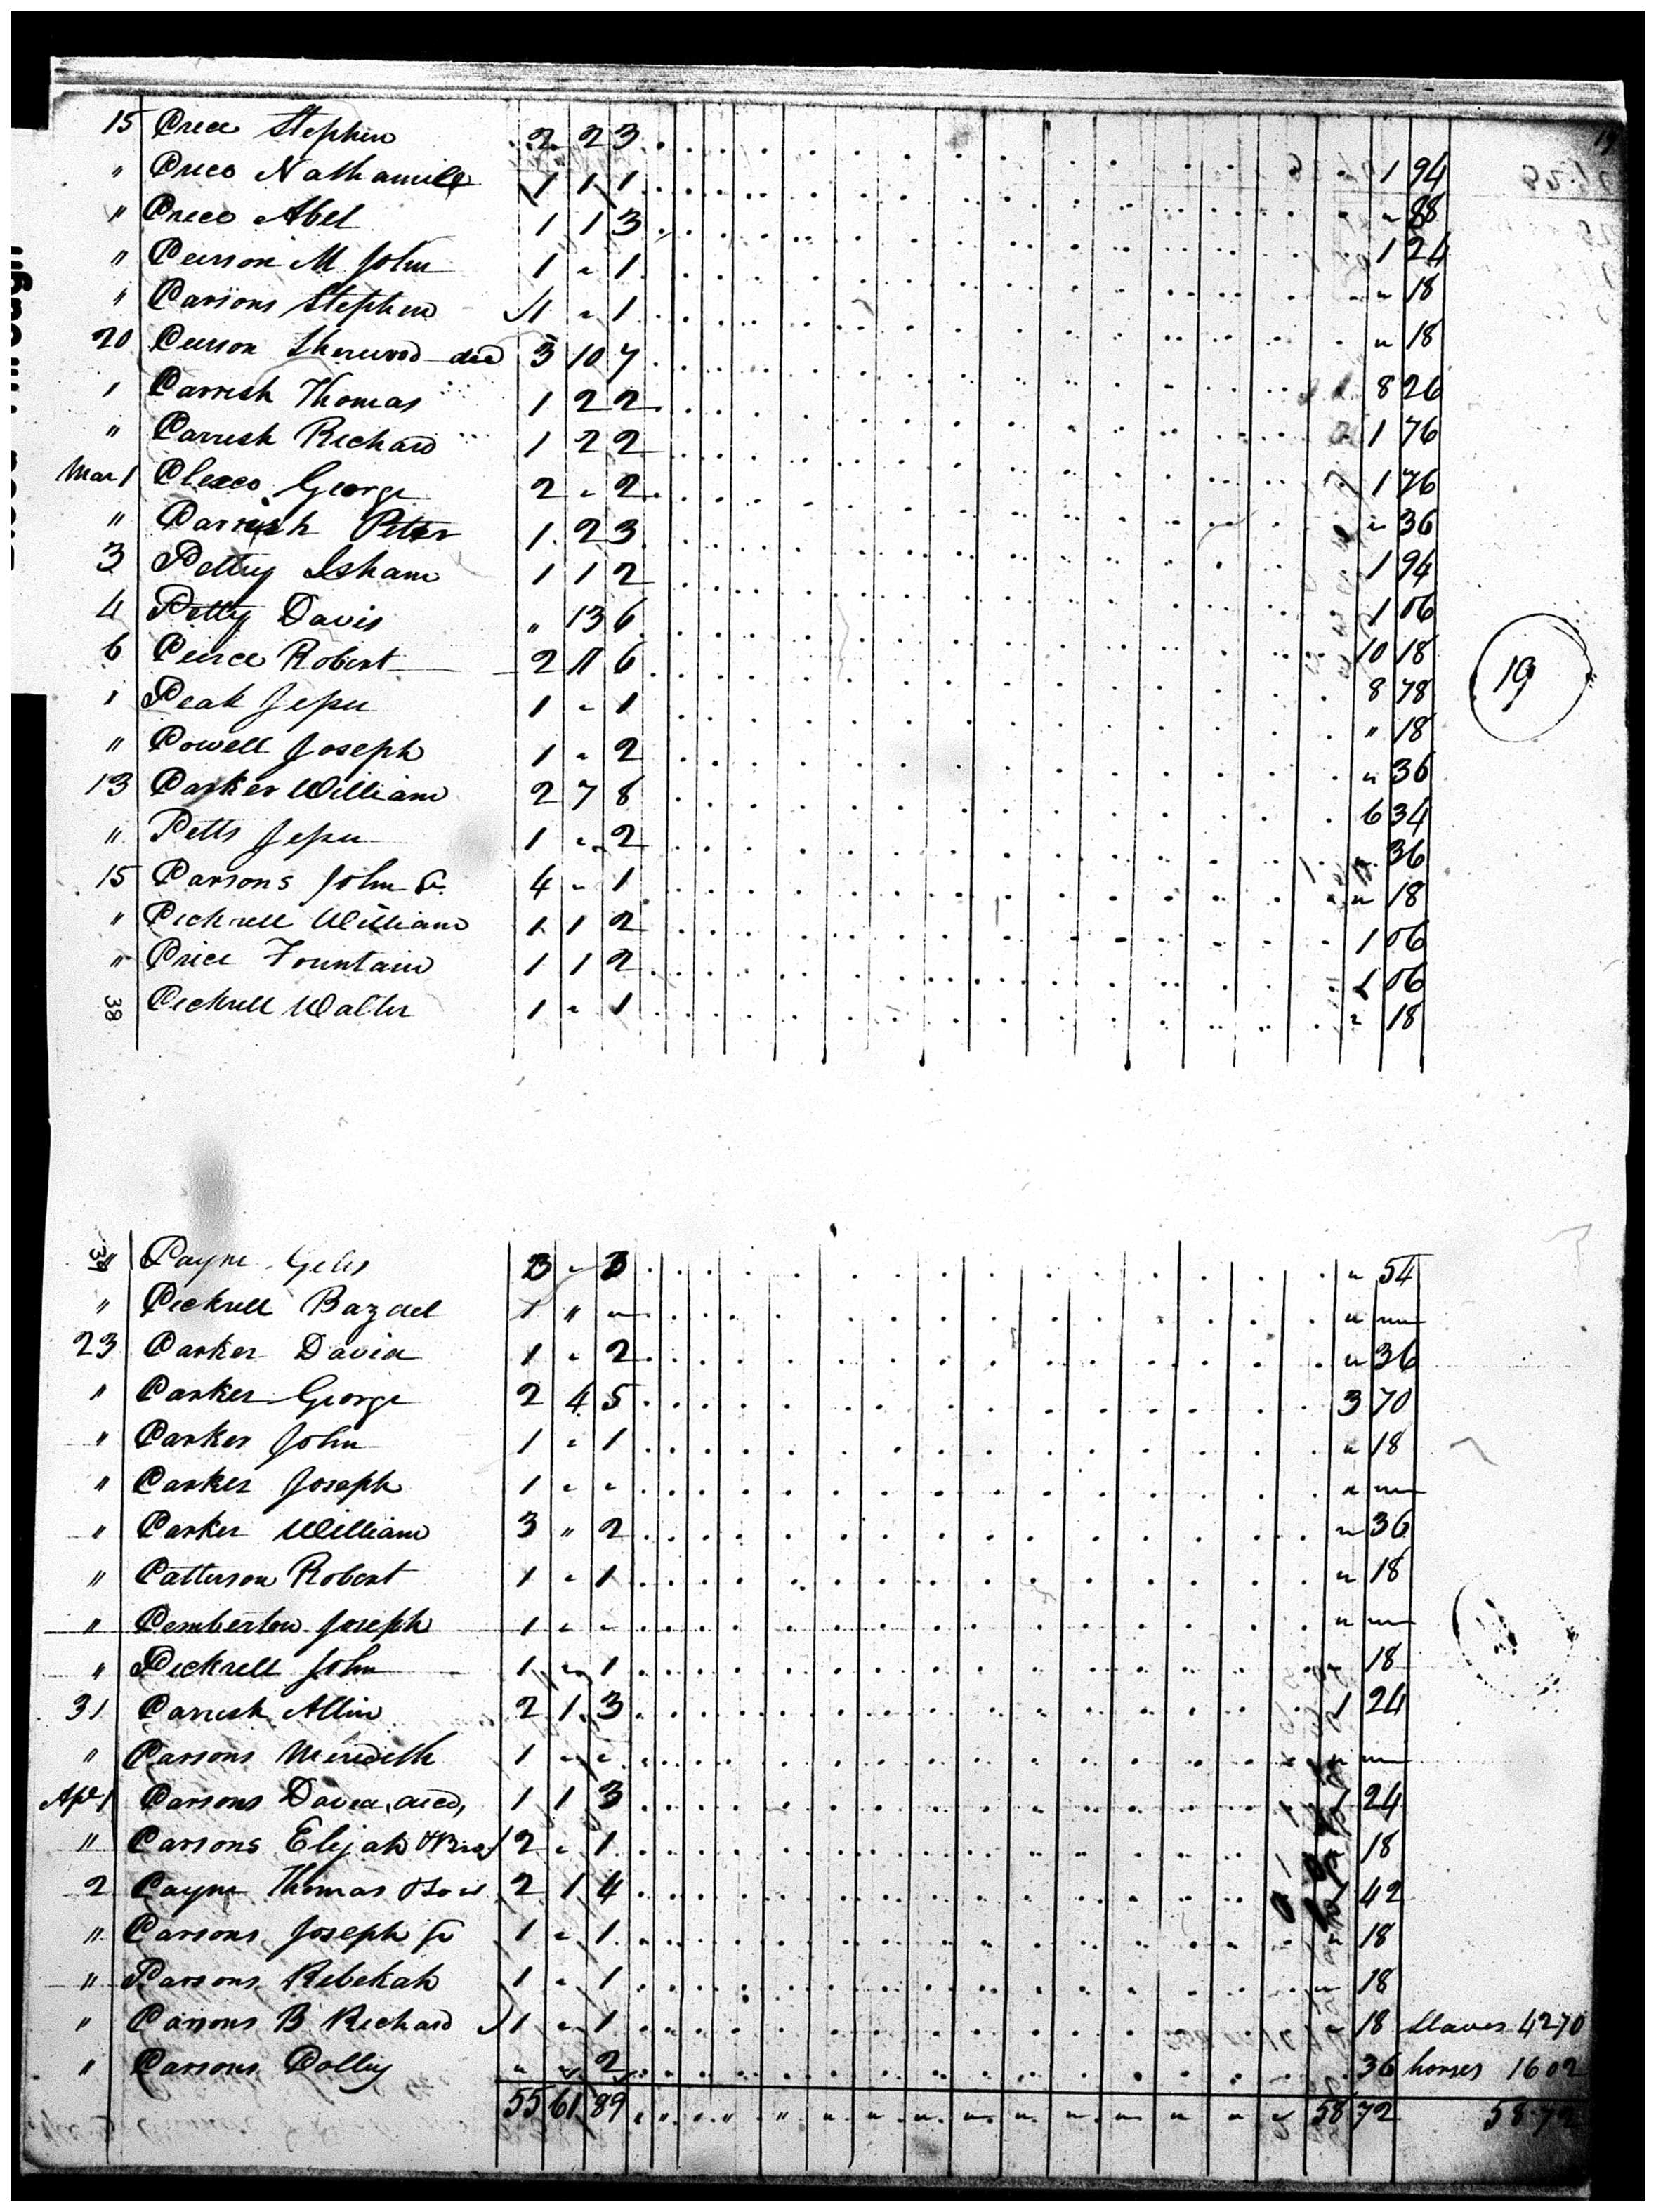 15 Price Stephen 2 2 3 1 94
" Price Nathaniell 1 1 1 " 88
" Price Abel 1 1 3 1 24
" Peirson M John 1 " 1 " 18
" Parsons Stephen 1 " 1 " 18
20 Peirson Sherwood decd 3 10 7 8 26
1 Parrish Thomas 1 2 2 1 76
" Parrish Richard 1 2 2 1 76
Mar 1 George 2 " 2 " 36
" Parrish Peter 1 2 3 1 94
3 Petty Isham 1 1 2 1 06
4 Petty Davis " 13 6 10 18
6 Peirce Robert 2 11 6 8 78
1 Peak Jesse 1 " 1 " 18
" Powell Joseph 1 " 2 " 36
13 Parker William 2 7 8 6 34
" Petts Jesse 1 " 2 " 36
15 Parsons John Sr. 4 " 1 " 18
" Pickrell William 1 1 2 1 06
" Price Fountain 1 1 2 1 06
38 Pickrell Walter 1 " 1 " 18
19
" Payne Giles 3 " 3 " 54
" Pickrell Bazdel 1 " " " "
23 Parker David 1 " 2 " 36
" Parker George 2 4 5 3 70
" Parker John 1 " 1 " 18
" Parker Joseph 1 " " " "
" Parker William 3 " 2 " 36
" Patterson Robert 1 " 1 " 18
" Pemberton Joseph 1 " " " "
" Pickrell John 1 " 1 " 18
31 Parrish Allin 2 1 3 1 24
" Parsons Merideth 1 " " " "
Apl 1 Parsons David, decd, 1 1 3 1 24
" Parsons Elijah & Bro 2 " 1 " 18
2 Payne Thomas & son 2 1 4 1 42
" Parsons Joseph Sr 1 " 1 " 18
" Parsons Rebekah 1 " 1 " 18
" Parsons B Richard 1 " 1 " 18 Slaves 42 70
" Parsons Polley " " 2 36 horses 16 02
55 61 89 " " " " " " " " " " " " " " " 58 72 58.72